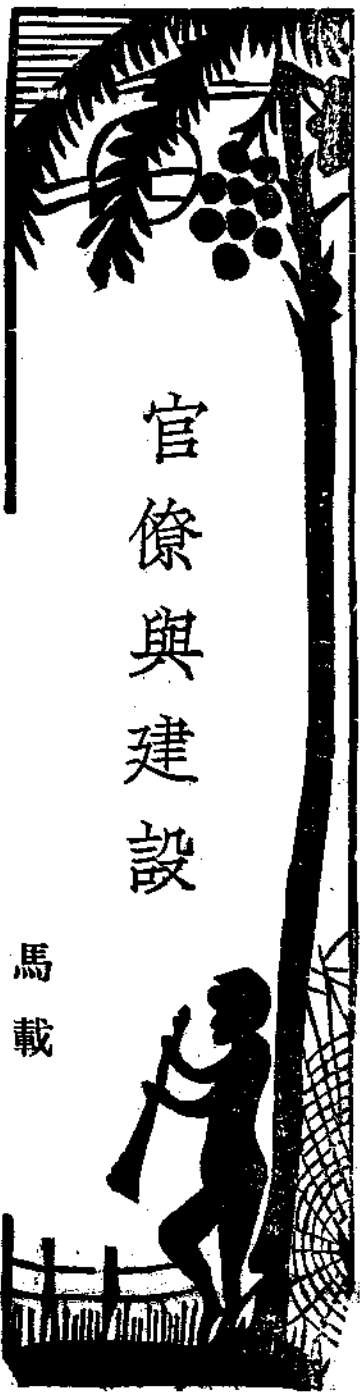 官僚與建設
馬載